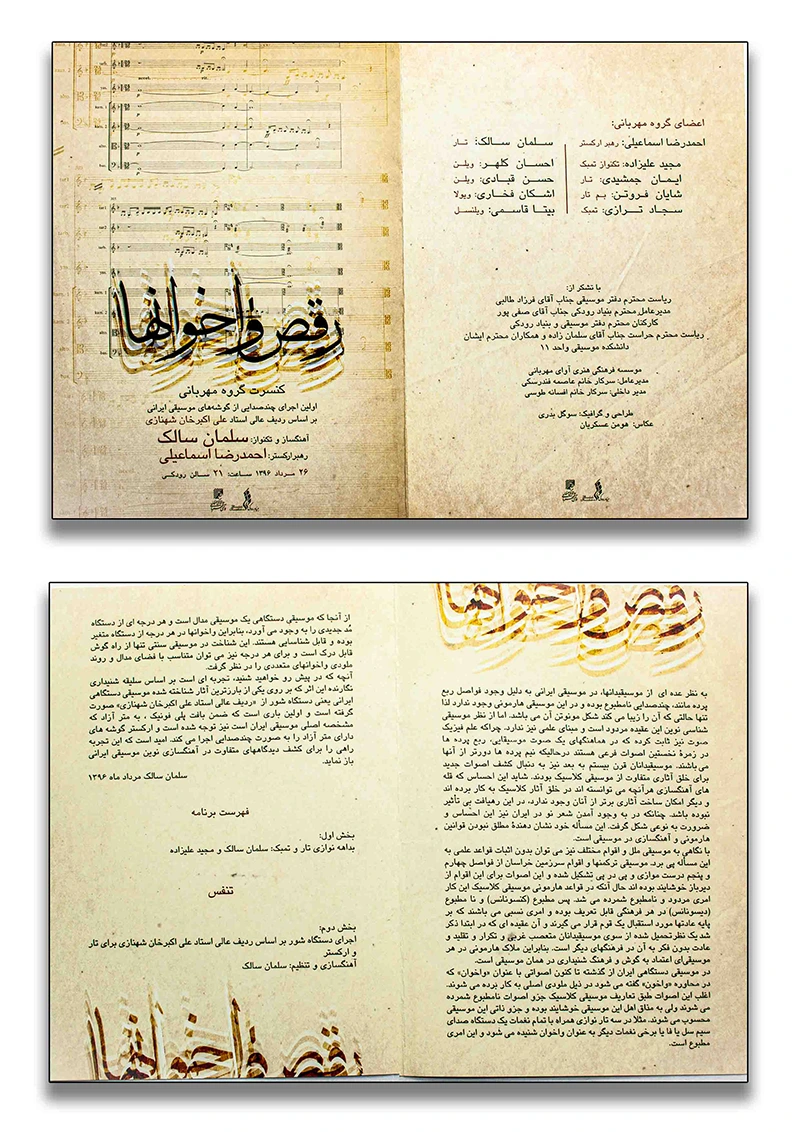 اعضای گروه مهربانی:
احمدرضا اسماعیلی: رهبر ارکستر
مجید علیزاده: تکنواز تمبک
ایمان جمشیدی: تار
شایان فروتن: بم تار
سجاد ترازی: تمبک
سلمان سالک: تار
احسان کلهر: ویلن
حسن قبادی: ویلن
اشکان فخاری: ویولا
بیتا قاسمی: ویلنسل
با تشکر از:
ریاست محترم دفتر موسیقی جناب آقای فرزاد طالبی
مدیرعامل محترم بنیاد رودکی جناب آقای صفی پور
کارکنان محترم دفتر موسیقی و بنیاد رودکی
ریاست محترم حراست جناب آقای سلمان زاده و همکاران محترم ایشان
دانشکده موسیقی واحد ۱۱
موسسه فرهنگی هنری آوای مهربانی
مدیرعامل: سرکار خانم عاصمه فندرسکی
مدیر داخلی: سرکار خانم افسانه طوسی
طراحی و گرافیک: سوگل بدری
عکاس: هومن عسکریان
رقص واخوانها
کنسرت گروه مهربانی
اولین اجرای چندصدایی از گوشه‌های موسیقی ایرانی
بر اساس ردیف عالی استاد علی اکبرخان شهنازی
آهنگساز و تکنواز: سلمان سالک
رهبرارکستر: احمدرضا اسماعیلی
۲۶ مرداد ۱۳۹۶ ساعت: ۲۱ سالن رودکی
رقص واخوانها
به نظر عده ای از موسیقیدانها، در موسیقی ایرانی به دلیل وجود فواصل ربع
پرده مانند، چندصدایی نامطبوع بوده و در این موسیقی هارمونی وجود ندارد لذا
تنها حالتی که آن را زیبا می کند شکل مونوتن آن می باشد. اما از نظر موسیقی
شناسی نوین این عقیده مردود است و مبنای علمی نیز ندارد. چراکه علم فیزیک
صوت نیز ثابت کرده که در هماهنگهای یک صوت موسیقایی، ربع پرده ها
در زمرهٔ نخستین اصوات فرعی هستند درحالیکه نیم پرده ها دورتر از آنها
می‌باشند. موسیقیدانان قرن بیستم به بعد نیز به دنبال کشف اصوات جدید
برای خلق آثاری متفاوت از موسیقی کلاسیک بودند. شاید این احساس که قله
های آهنگسازی هرآنچه می توانسته اند در خلق آثار کلاسیک به کار برده اند
و دیگر امکان ساخت آثاری برتر از آنان وجود ندارد، در این رهیافت بی تأثیر
نبوده باشد. چنانکه در به وجود آمدن شعر نو در ایران نیز این احساس و
ضرورت به نوعی شکل گرفت. این مسأله خود نشان دهندهٔ مطلق نبودن قوانین
هارمونی و آهنگسازی در موسیقی است.
با نگاهی به موسیقی ملل و اقوام مختلف نیز می توان بدون اثبات قواعد علمی به
این مسأله پی برد. موسیقی ترکمنها و اقوام سرزمین خراسان از فواصل چهارم
و پنجم درست موازی و پی در پی تشکیل شده و این اصوات برای این اقوام از
دیرباز خوشایند بوده اند حال آنکه در قواعد هارمونی موسیقی کلاسیک این کار
امری مردود و نامطبوع شمرده می شد. پس مطبوع (کنسونانس) و نا مطبوع
(دیسونانس) در هر فرهنگی قابل تعریف بوده و امری نسبی می باشند که بر
پایه عادتها مورد استقبال یک قوم قرار می گیرند و آن عقیده ای که در ابتدا ذکر
شد یک نظر تحمیل شده از سوی موسیقیدانان متعصب غربی و تکرار و تقلید و
عادت بدون فکر به آن در فرهنگهای دیگر است. بنابراین ملاک هارمونی در هر
موسیقی‌ای اعتماد به گوش و فرهنگ شنیداری در همان موسیقی است.
در موسیقی دستگاهی ایران از گذشته تا کنون اصواتی با عنوان «واخوان» که
در محاوره «واخون» گفته می شود در ذیل ملودی اصلی به کار برده می شوند.
اغلب این اصوات طبق تعاریف موسیقی کلاسیک جزو اصوات نامطبوع شمرده
می شوند ولی به مذاق اهل این موسیقی خوشایند بوده و جزو ذاتی این موسیقی
محسوب می شوند. مثلا در سه تار نوازی همراه با تمام نغمات یک دستگاه صدای
سیم سل یا فا یا برخی نغمات دیگر به عنوان واخوان شنیده می شود و این امری
مطبوع است.
از آنجا که موسیقی دستگاهی یک موسیقی مدال است و هر درجه ای از دستگاه
مُد جدیدی را به وجود می آورد، بنابراین واخوانها در هر درجه از دستگاه متغیر
بوده و قابل شناسایی هستند. این شناخت در موسیقی سنتی تنها از راه گوش
قابل درک است و برای هر درجه نیز می توان متناسب با فضای مدال و روند
ملودی واخوانهای متعددی را در نظر گرفت.
آنچه که در پیش رو خواهید شنید، تجربه ای است بر اساس سلیقه شنیداری
نگارنده این اثر که بر روی یکی از بارزترین آثار شناخته شده موسیقی دستگاهی
ایرانی یعنی دستگاه شور از «ردیف عالی استاد علی اکبرخان شهنازی» صورت
گرفته است و اولین باری است که ضمن بافت پلی فونیک ، به متر آزاد که
مشخصه اصلی موسیقی ایران است نیز توجه شده است و ارکستر گوشه های
دارای متر آزاد را به صورت چندصدایی اجرا می کند. امید است که این تجربه
راهی را برای کشف دیدگاههای متفاوت در آهنگسازی نوین موسیقی ایرانی
باز نماید.
سلمان سالک مرداد ماه ۱۳۹۶
فهرست برنامه
بخش اول:
بداهه نوازی تار و تمبک: سلمان سالک و مجید علیزاده
تنفس
بخش دوم:
اجرای دستگاه شور بر اساس ردیف عالی استاد علی اکبرخان شهنازی برای تار
و ارکستر
آهنگسازی و تنظیم: سلمان سالک
رقص واخوانها